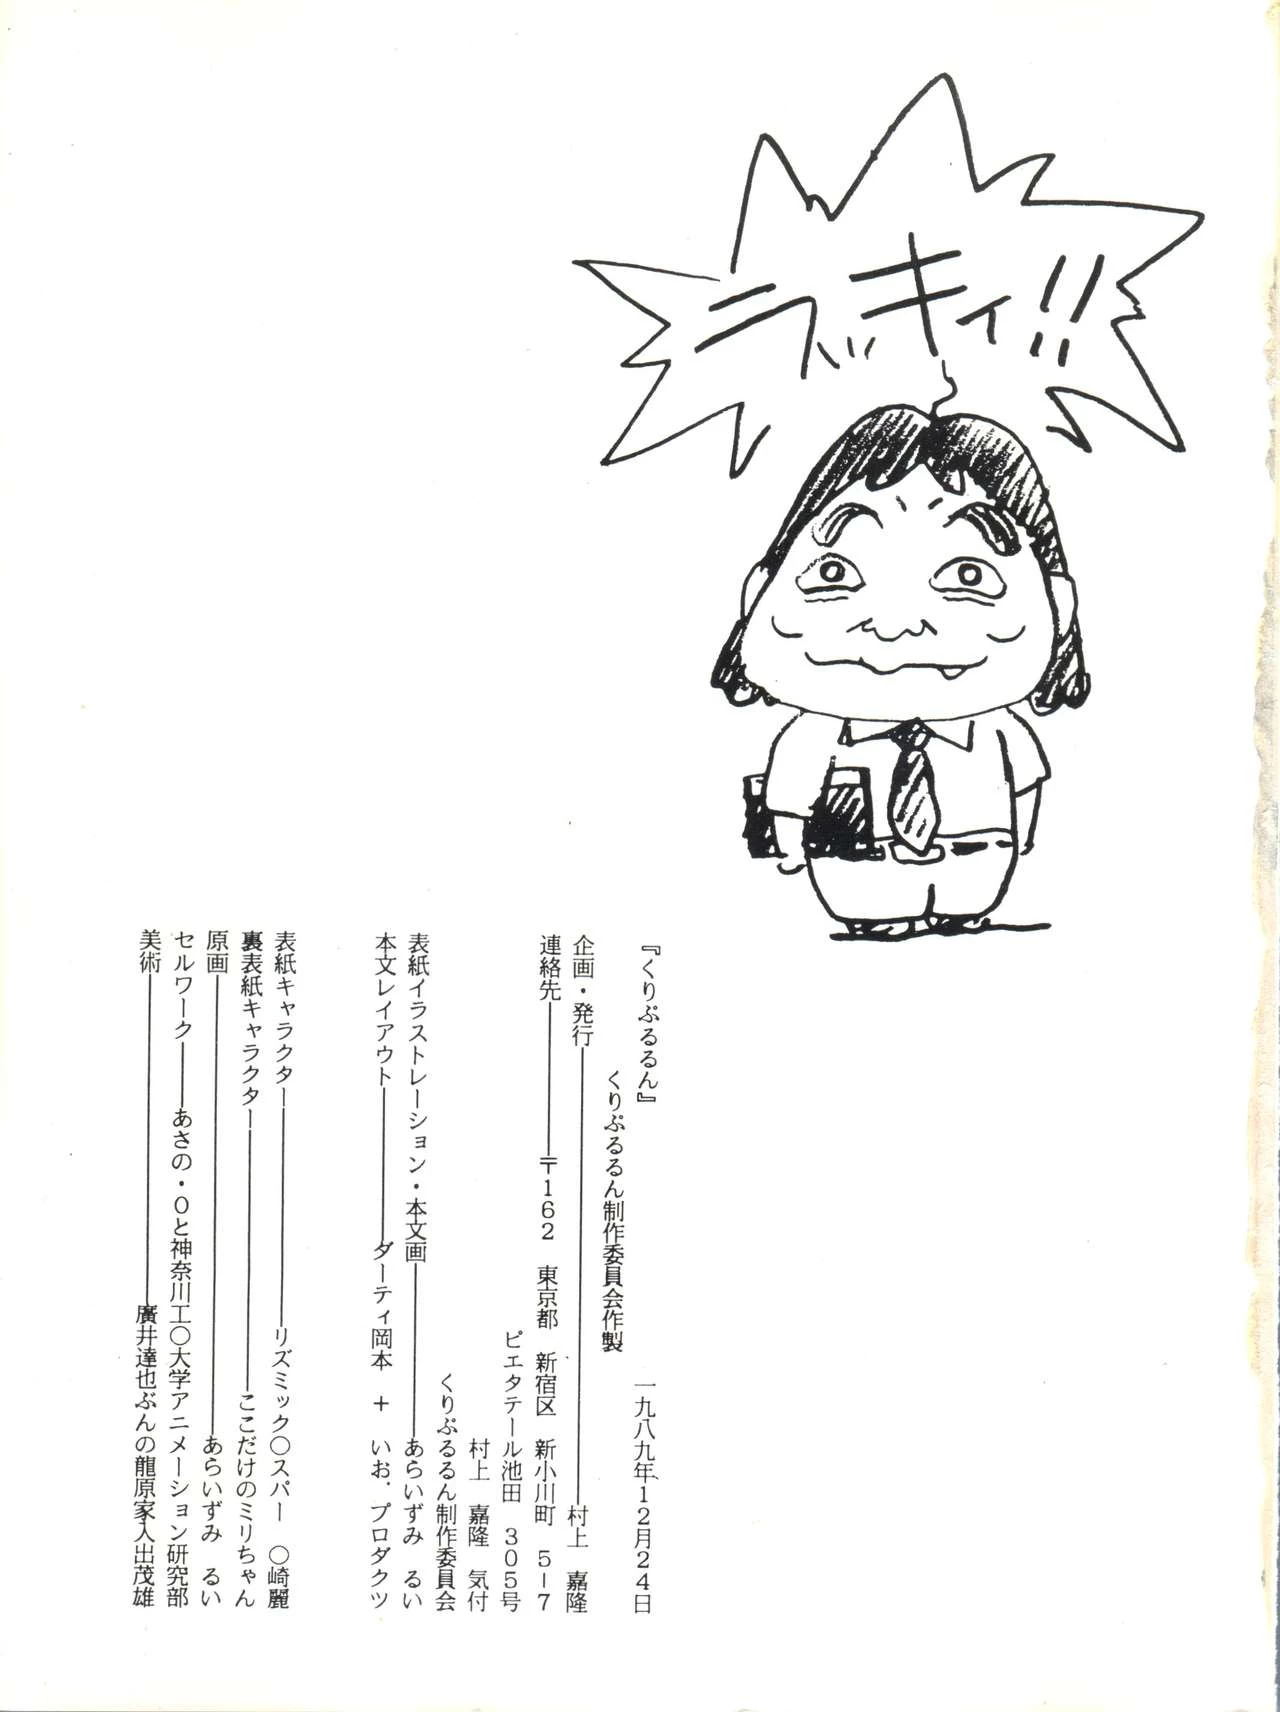 ラッキィ!!
『くりぷるるん』　一九八九年12月24日
くりぷるるん制作委員会作製
企画・発行――――村上　嘉隆
連絡先――――〒162　東京都　新宿区　新小川町　5-7
ピエタテール池田　305号
村上　嘉隆　気付
くりぷるるん制作委員会
表紙イラストレーション・本文画――――あらいずみ　るい
本文レイアウト――――ダーティ岡本　+　いお．プロダクツ
表紙キャラクター――――リズミック○スパー　○崎麗
裏表紙キャラクター――――ここだけのミリちゃん
原画――――あらいずみ　るい
セルワーク――あさの・Oと神奈川工○大学アニメーション研究部
美術――――廣井達也ぶんの龍原家人出茂雄